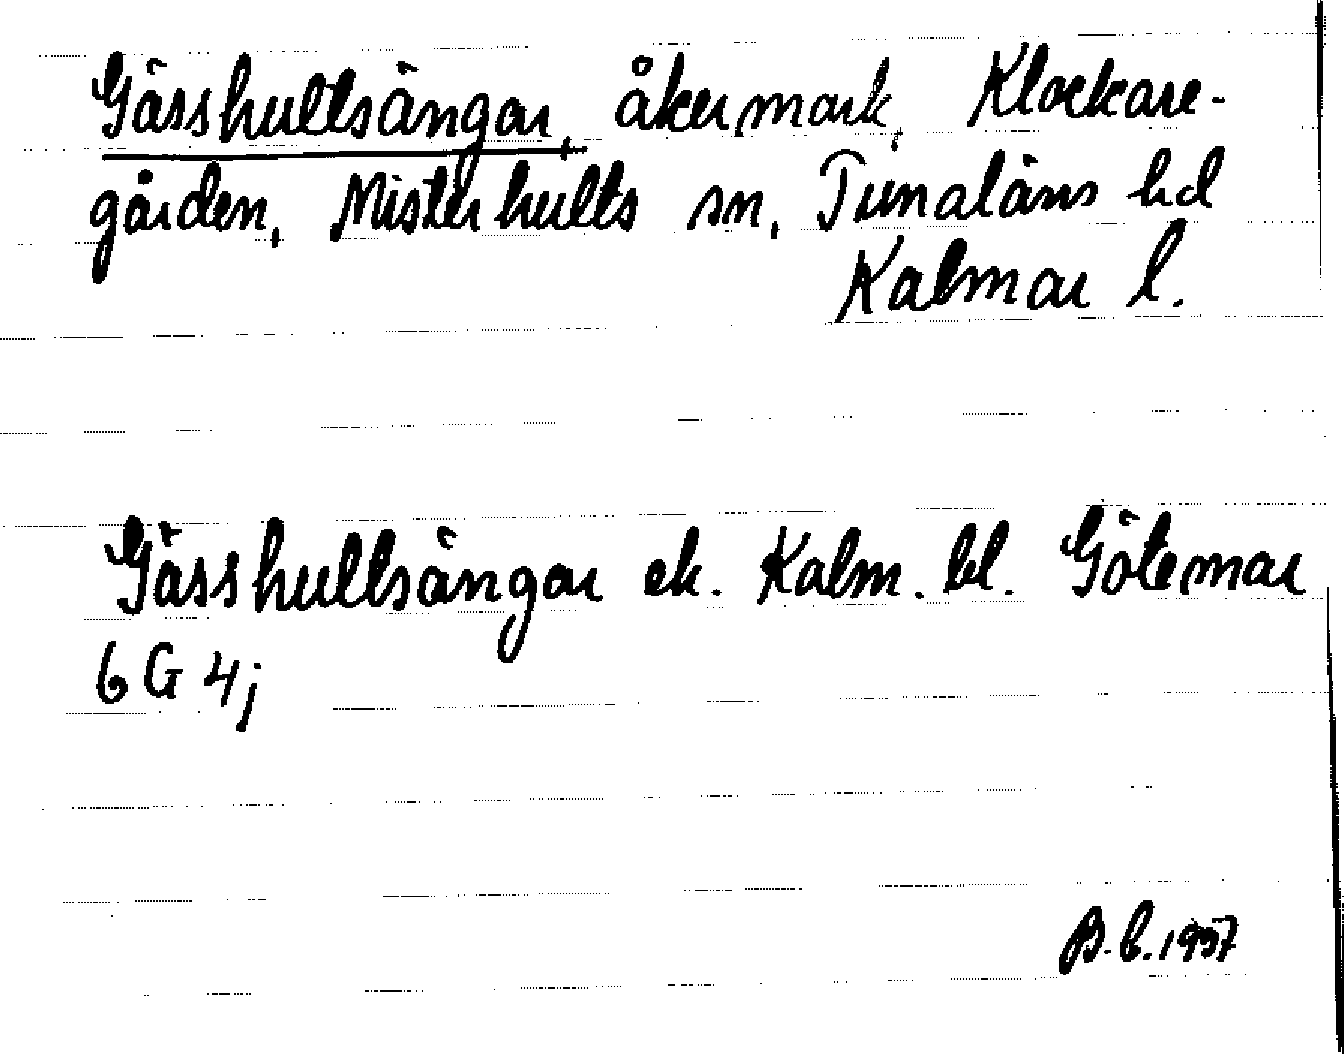 Gässhultsängar, åkermark, Klockare-
gården, Misterhults sn, Tunaläns hd
Kalmar l.
Gässhultsängar ek. Kalm. bl. Götemar
6 G 4j
B. b. 1937